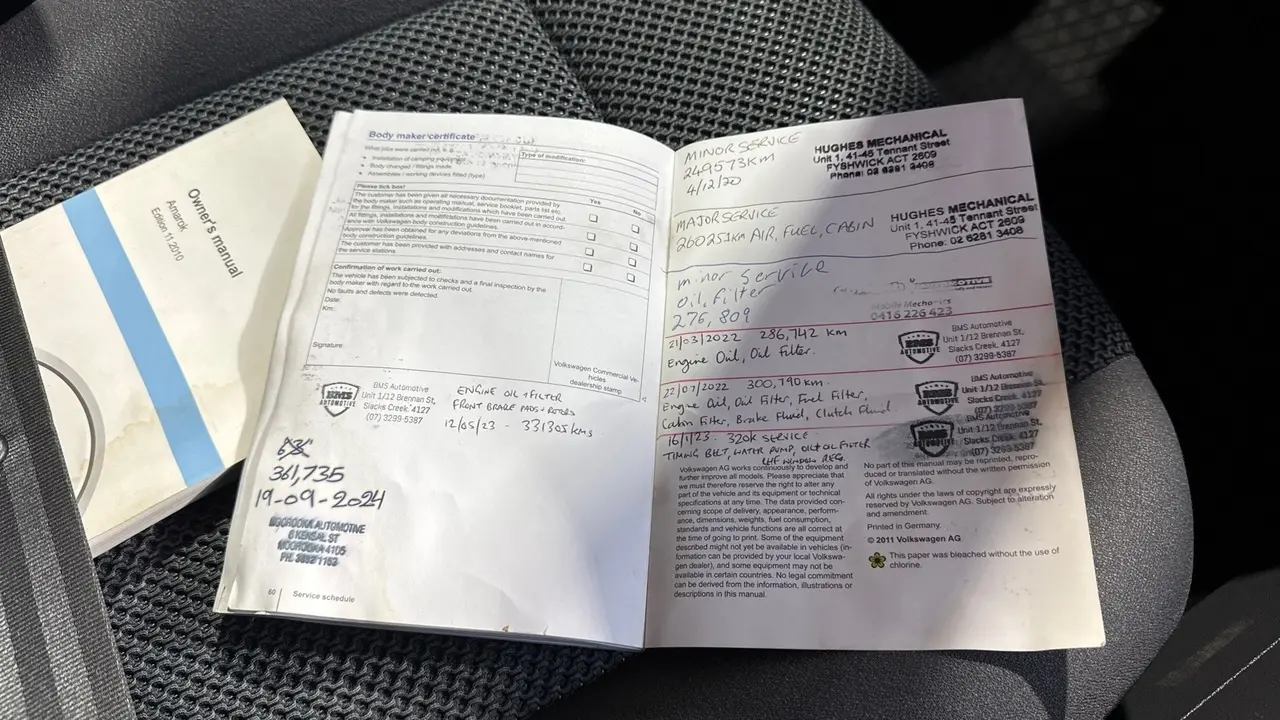 Owner's manual
Amarok
Edition 11.2010
Body maker certificate
What jobs were carried out, e.g.
• Installation of camping equipment
• Body changed / fittings made
• Assemblies / working devices fitted (type)
Type of modification:
Please tick box!
Yes
No
The customer has been given all necessary documentation provided by
the body maker such as operating manual, service booklet, parts list etc.
for the fittings, installations and modifications which have been carried out.
All fittings, installations and modifications have been carried out in accord-
ance with Volkswagen body construction guidelines.
Approval has been obtained for any deviations from the above-mentioned
body construction guidelines.
The customer has been provided with addresses and contact names for
the service stations.
Confirmation of work carried out:
The vehicle has been subjected to checks and a final inspection by the
body maker with regard to the work carried out.
No faults and defects were detected.
Date:
Km:
Signature
Volkswagen Commercial Ve-
hicles
dealership stamp
BMS
AUTOMOTIVE
BMS Automotive
Unit 1/12 Brennan St,
Slacks Creek, 4127
(07) 3299-5387
ENGINE OIL + FILTER
FRONT BRAKE PADS + ROTORS
12/05/23 - 331305 KMS
361,735
19-09-2024
MOOROOKA AUTOMOTIVE
6 KENSAL ST
MOOROOKA 4105
PH: 3892 1163
60
Service schedule
MINOR SERVICE
249573KM
4/12/20
HUGHES MECHANICAL
Unit 1, 41-45 Tennant Street
FYSHWICK ACT 2609
Phone: 02 6281 3408
MAJOR SERVICE
260251KM AIR, FUEL, CABIN
HUGHES MECHANICAL
Unit 1, 41-45 Tennant Street
FYSHWICK ACT 2609
Phone: 02 6281 3408
minor service
oil, filter
276,809
Mobile Mechanics
0416 226 423
21/03/2022 286,742 km
Engine Oil, Oil Filter.
BMS
AUTOMOTIVE
BMS Automotive
Unit 1/12 Brennan St,
Slacks Creek, 4127
(07) 3299-5387
22/07/2022 300,790 km.
Engine Oil, Oil Filter, Fuel Filter,
Cabin Filter, Brake Fluid, Clutch Fluid.
BMS
AUTOMOTIVE
BMS Automotive
Unit 1/12 Brennan St,
Slacks Creek, 4127
(07) 3299-5387
16/1/23. 320K SERVICE
TIMING BELT, WATER PUMP, OIL + OIL FILTER
LHF WINDOW REG.
AUTOMOTIVE
BMS Automotive
Unit 1/12 Brennan St,
Slacks Creek, 4127
(07) 3299-5387
Volkswagen AG works continuously to develop and
further improve all models. Please appreciate that
we must therefore reserve the right to alter any
part of the vehicle and its equipment or technical
specifications at any time. The data provided con-
cerning scope of delivery, appearance, perform-
ance, dimensions, weights, fuel consumption,
standards and vehicle functions are all correct at
the time of going to print. Some of the equipment
described might not yet be available in vehicles (in-
formation can be provided by your local Volkswa-
gen dealer), and some equipment may not be
available in certain countries. No legal commitment
can be derived from the information, illustrations or
descriptions in this manual.
No part of this manual may be reprinted, repro-
duced or translated without the written permission
of Volkswagen AG.
All rights under the laws of copyright are expressly
reserved by Volkswagen AG. Subject to alteration
and amendment.
Printed in Germany.
© 2011 Volkswagen AG
This paper was bleached without the use of
chlorine.